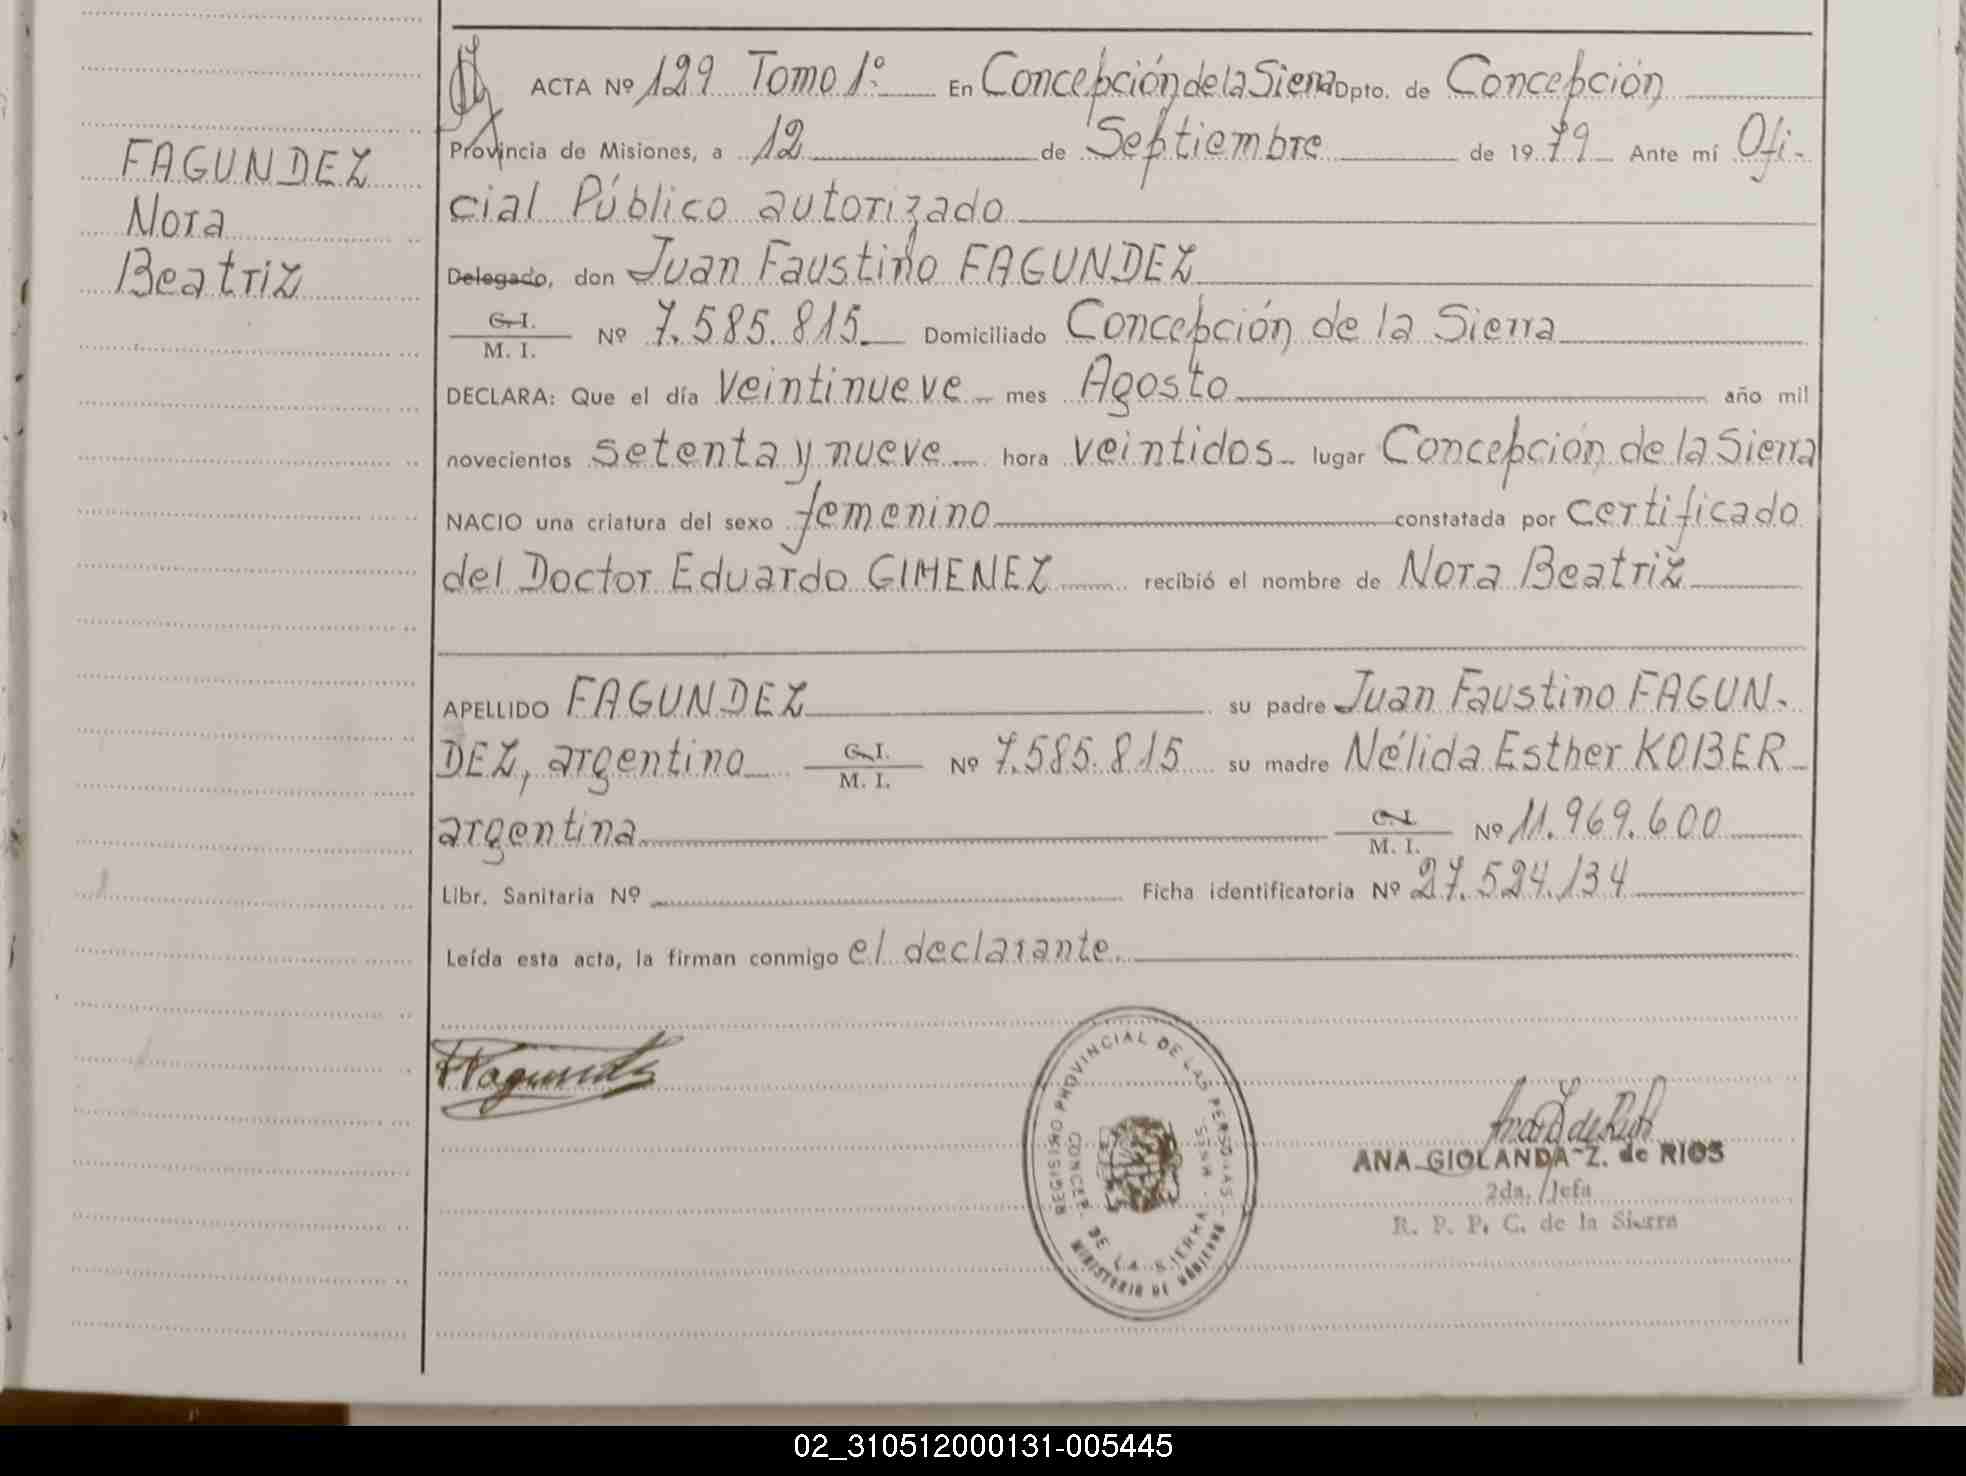 FAGUNDEZ
Nora
Beatriz
ACTA Nº 129 Tomo 1º En Concepción de la Sierra Dpto. de Concepción
Provincia de Misiones, a 12 de Septiembre de 1979 Ante mí Ofi-
cial Público autorizado
Delegado, don Juan Faustino FAGUNDEZ
C. I.
M. I. Nº 7.585.815 Domiciliado Concepción de la Sierra
DECLARA: Que el día veintinueve mes Agosto año mil
novecientos setenta y nueve hora veintidos lugar Concepción de la Sierra
NACIO una criatura del sexo femenino constatada por certificado
del Doctor Eduardo GIMENEZ recibió el nombre de Nora Beatriz
APELLIDO FAGUNDEZ su padre Juan Faustino FAGUN-
DEZ, argentino C. I. M. I. Nº 7.585.815 su madre Nélida Esther KOBER
argentina C. I. M. I. Nº 11.969.600
Libr. Sanitaria Nº Ficha identificatoria Nº 27.524.134
Leída esta acta, la firman conmigo el declarante.
REGISTRO PROVINCIAL DE LAS PERSONAS
CONCEP. DE LA SIERRA
MINISTERIO DE GOBIERNO
ANA GIOLANDA Z. de RIOS
2da. Jefa
R. P. P. C. de la Sierra
02_310512000131-005445